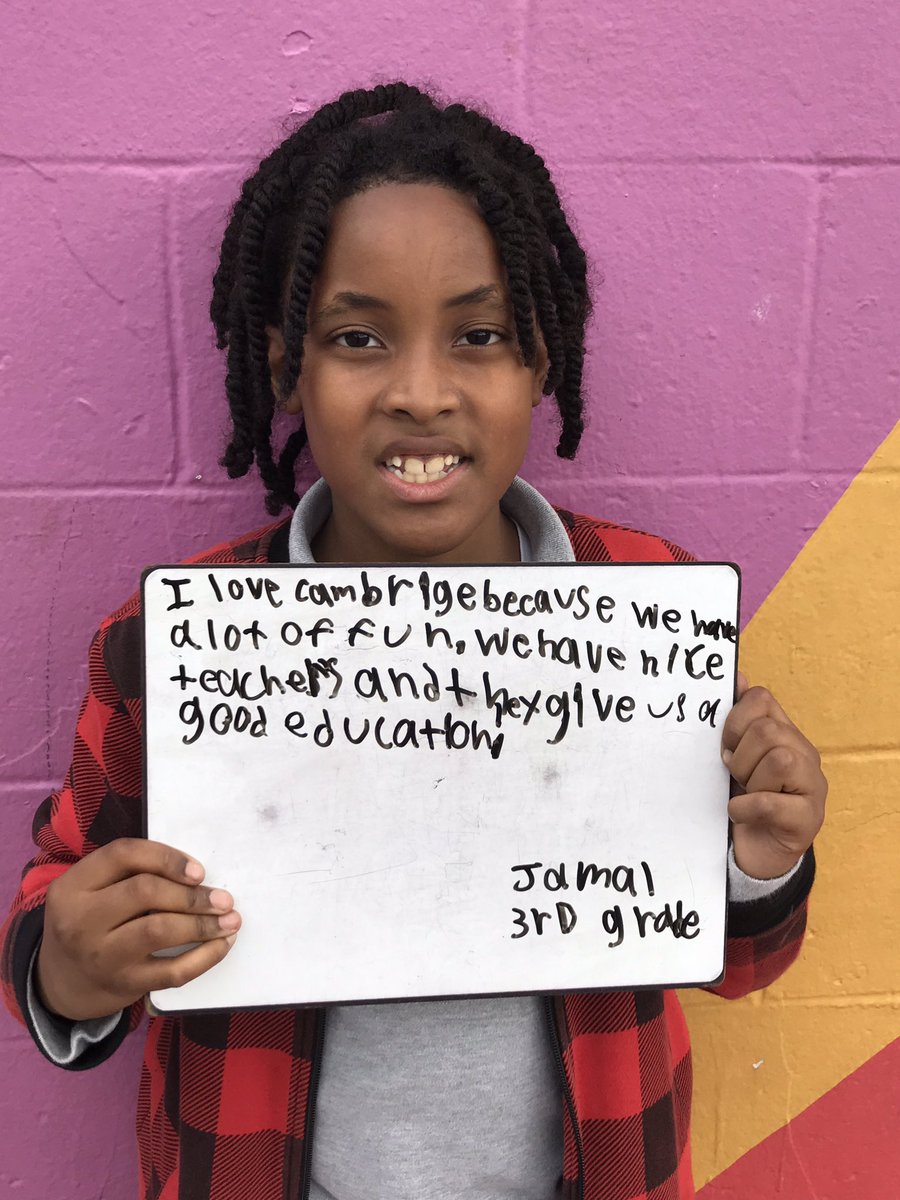 I love cambrige because we have
a lot of fun, we have nice
teachers and they give us a
good education,
Jamal
3rD grade